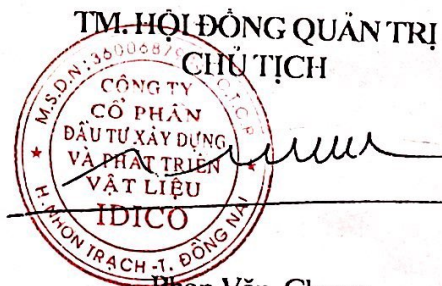 TM. HỘI ĐỒNG QUẢN TRỊ
CHỦ TỊCH
M.S.D.N: 36006879 C.T.C.P
CÔNG TY
CỔ PHẦN
ĐẦU TƯ XÂY DỰNG
VÀ PHÁT TRIỂN
VẬT LIỆU
IDICO
H. NHƠN TRẠCH - T. ĐỒNG NAI
Phan Văn